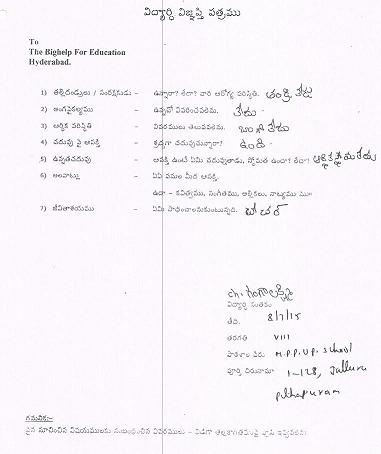 విద్యార్థి విజ్ఞప్తి పత్రము
To
The Bighelp For Education
Hyderabad.
1) తల్లిదండ్రులు / సంరక్షకుడు - ఉన్నారా? లేదా? వారి ఆరోగ్య పరిస్థితి. తండ్రి లేరు
2) అంగవైకల్యము - ఉన్నచో వివరించవలెను. లేదు
3) ఆర్థిక పరిస్థితి - వివరములు తెలుపవలెను. లేదు
4) చదువు పై ఆసక్తి - శ్రద్ధగా చదువుచున్నారా? ఉంది
5) ఉన్నతచదువు - ఆసక్తి ఉంటే ఏమి చదువుతాడు, స్తోమత ఉందా? లేదా?
6) అలవాట్లు - ఏఏ పనుల మీద ఆసక్తి.
ఉదా - కవిత్వము, సంగీతము, అల్లికలు, నాట్యము
7) జీవితాశయము - ఏమి సాధించాలనుకుంటున్నది. టీచర్
ch. గంగాలక్ష్మి
విద్యార్థి సంతకం
తేది. 8/7/15
తరగతి VIII
పాఠశాల పేరు M.P.P.UP. School
పూర్తి చిరునామా 1-128, Jalluru
pithapuram
గమనిక:-
పైన సూచించిన విషయములకు సంబంధించిన వివరములు - విడిగా తెల్లకాగితముపై వ్రాసి ఇవ్వవలెను.